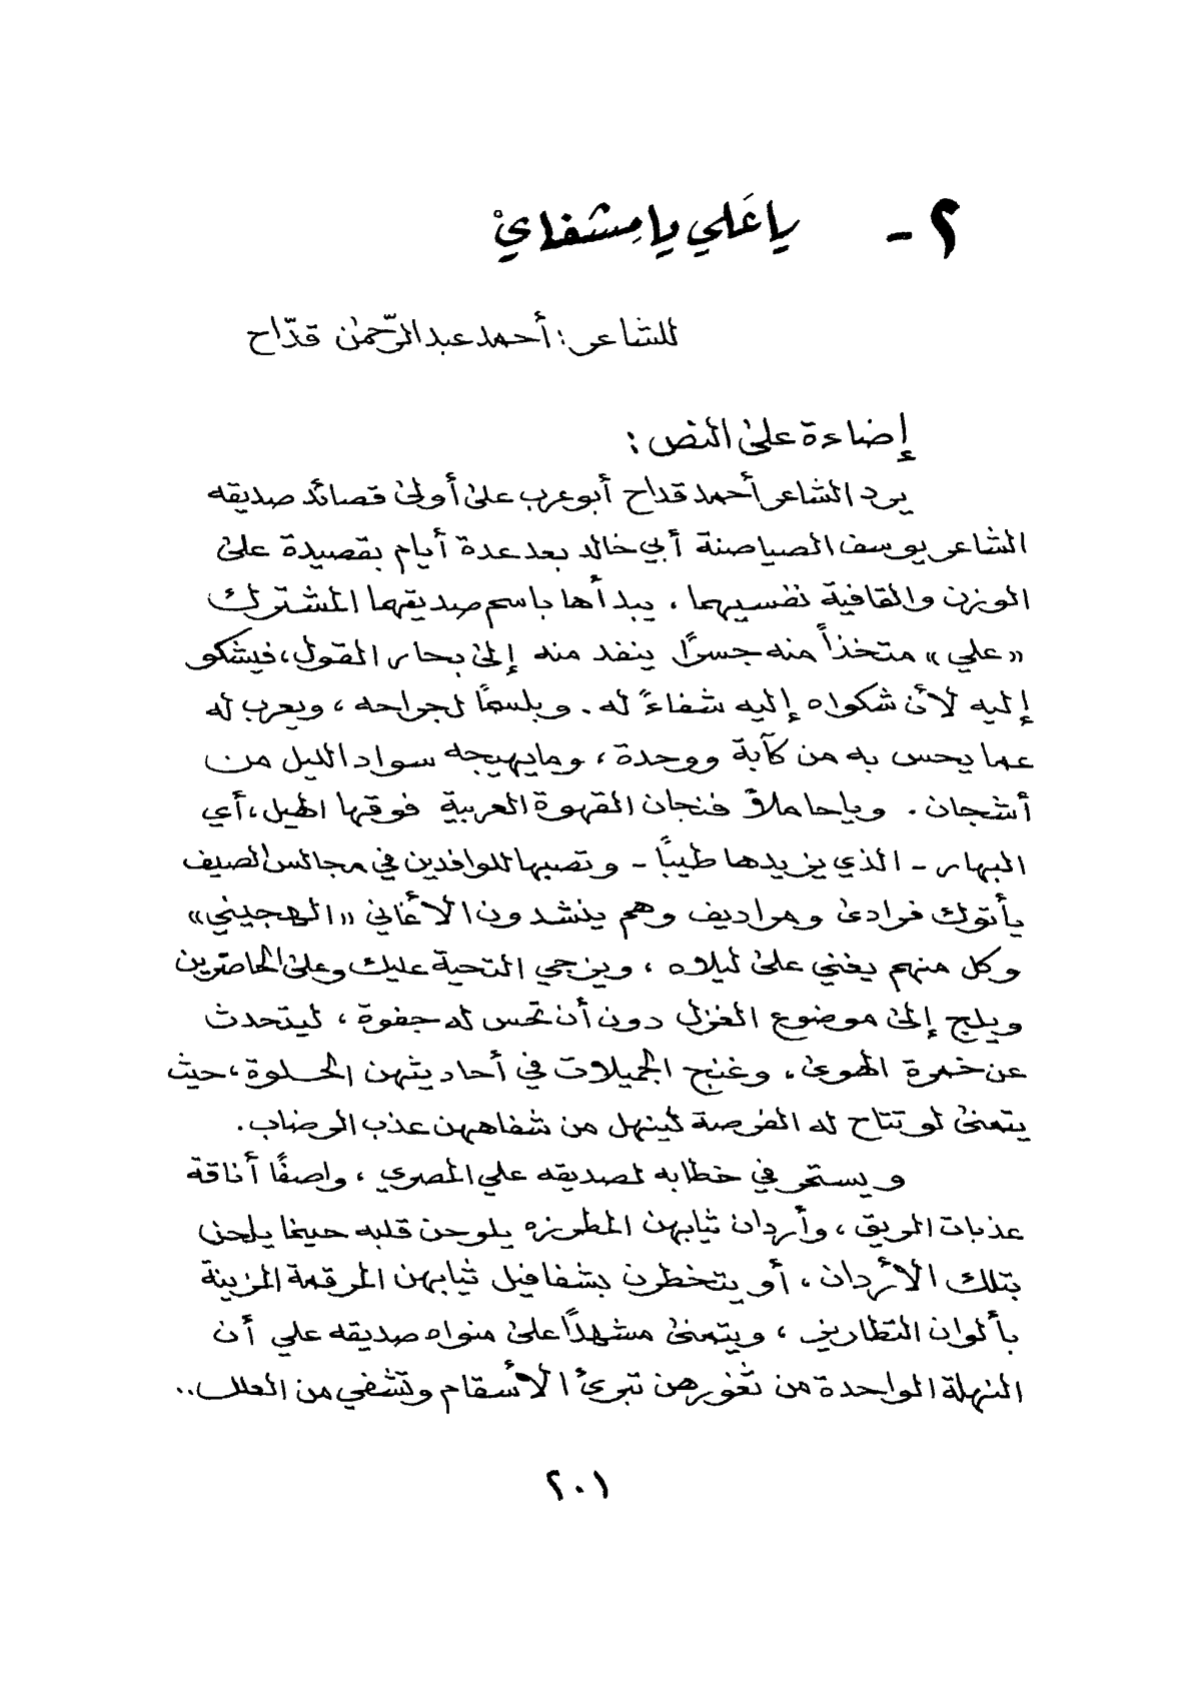 ٢ - يا عَلي يا مِشفايْ
للشاعر: أحمد عبد الرّحمٰن قدّاح
إضاءة علىٰ النص:
يرد الشاعر أحمد قداح أبو عرب علىٰ أولىٰ قصائد صديقه
الشاعر يوسف الصياصنة أبي خالد بعد عدة أيام بقصيدة علىٰ
الوزن والقافية نفسيهما، يبدأها باسم صديقهما المشترك
«علي» متخذاً منه جسرًا ينفد منه إلىٰ بحار القول، فيشكو
إليه لأن شكواه إليه شفاءً له. وبلسمًا لجراحه، ويعرب له
عما يحس به من كآبة ووحدة، ومايهيجه سواد الليل من
أشجان. وياحاملاً فنجان القهوة العربية فوقها الهيل، أي
البهار - الذي يزيدها طيبًا - وتصبها للوافدين في مجالس الصيف
يأتوك فرادىٰ ومراديف وهم ينشدون الأغاني «الهجيني»
وكل منهم يغني علىٰ ليلاه، ويزجي التحية عليك وعلىٰ الحاضرين
ويلج إلىٰ موضوع الغزل دون أن تحس له جفوة، ليتحدث
عن خمرة الهوىٰ، وغنج الجميلات في أحاديثهن الحلوة، حيث
يتمنىٰ لو تتاح له الفرصة لينهل من شفاههن عذب الرضاب.
ويستمر في خطابه لصديقه علي المصري، واصفًا أناقة
عذبات الريق، وأردان ثيابهن المطرزه يلوحن قلبه حينما يلحن
بتلك الأردان، أو يتخطرن بشفافيل ثيابهن المرقمة المزينة
بألوان التطاريز، ويتمنىٰ مشهدًا علىٰ منواه صديقه علي أن
النهلة الواحدة من ثغورهن تبرئ الأسقام وتشفي من العلل..
٢٠١